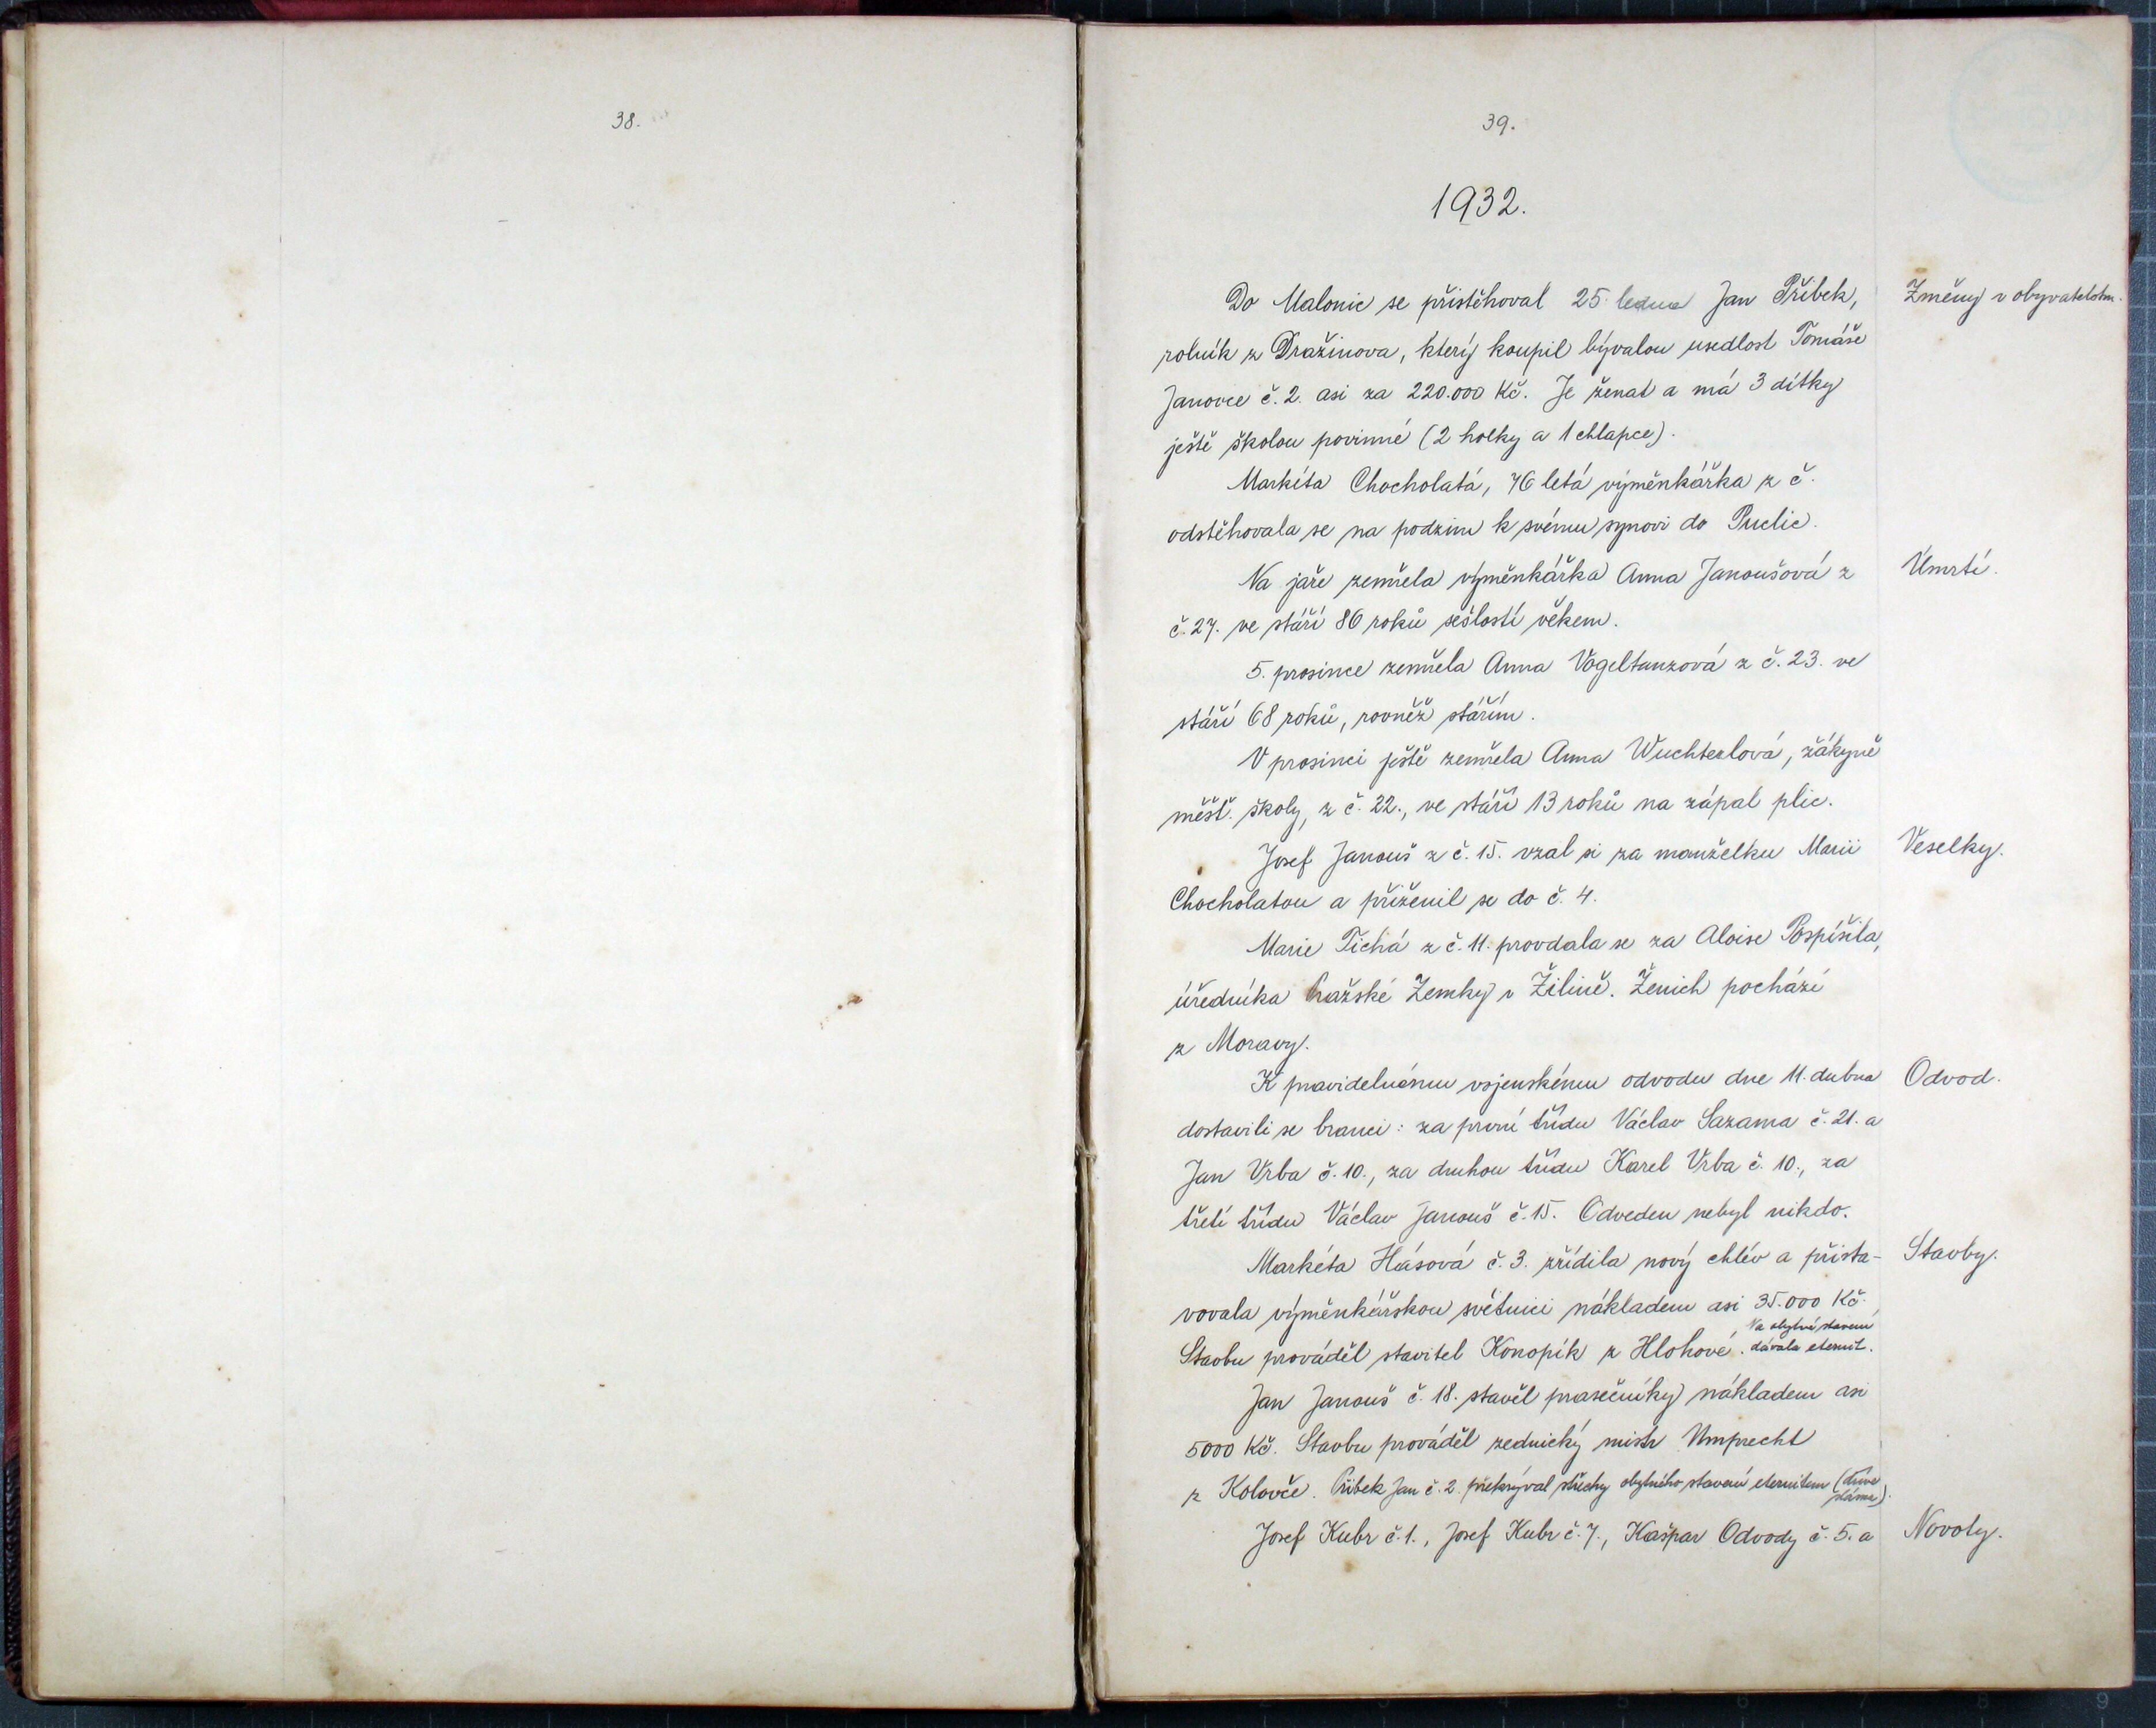 38.
39.
1932.
Do Malonic se přistěhoval 25. ledna Jan Příbek,
Změny v obyvatelstvu.
rolník z Dražinova, který koupil bývalou usedlost Tomáše
Janovce č. 2. asi za 220.000 Kč. Je ženat a má 3 dítky
ještě školou povinné (2 holky a 1 chlapce).
Markéta Chocholatá, 76 letá výměnkářka z č.
odstěhovala se na podzim k svému synovi do Puclic.
Na jaře zemřela výměnkářka Anna Janoušová z
Úmrtí.
č. 27. ve stáří 86 roků sešlostí věkem.
5. prosince zemřela Anna Vogeltanzová z č. 23. ve
stáří 68 roků, rovněž stářím.
V prosinci ještě zemřela Anna Wuchterlová, žákyně
měšť. školy, z č. 22., ve stáří 13 roků na zápal plic.
Josef Janouš z č. 15. vzal si za manželku Marii
Veselky.
Chocholatou a přiženil se do č. 4.
Marie Tichá z č. 11. provdala se za Aloise Pospíšila,
úředníka Pražské Zemky v Žilině. Ženich pochází
z Moravy.
K pravidelnému vojenskému odvodu dne 11. dubna
Odvod.
dostavili se branci: za první třídu Václav Sazama č. 21. a
Jan Vrba č. 10., za druhou třídu Karel Vrba č. 10., za
třetí třídu Václav Janouš č. 15. Odveden nebyl nikdo.
Markéta Hásová č. 3. zřídila nový chlév a přista-
Stavby.
vovala výměnkářskou světnici nákladem asi 35.000 Kč.
Na obytné stavení
Stavbu prováděl stavitel Konopík z Hlohové. dávala eternit.
Jan Janouš č. 18. stavěl prasečníky nákladem asi
5000 Kč. Stavbu prováděl zednický mistr Umprecht
z Kolovče. Příbek Jan č. 2. překrýval střechy obytného stavení eternitem (dříve
sláma).
Josef Kubr č. 1., Josef Kubr č. 7., Kašpar Odvody č. 5. a
Novoty.